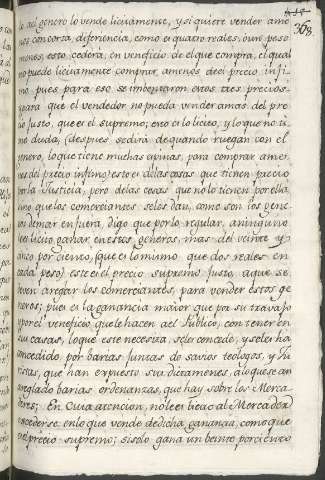 368
el genero lo vende licitamente, y si quiere vender ame
nos con corta diferencia, como es quatro reales, ô un peso
menos; esto, cederà, en veneficio de el que compra, el qual
no puede licitamente comprar, amenos de el precio infi
mo pues para eso, se imbentaron estos tres precios
para que el vendedor no pueda vender amas del pre
justo, que es el supremo; esto es lo licito, y lo que no ti
ne duda, (despues sedirà de quando ruegan con el
genero, lo que tiene muchas opinas, para comprar ame
nos del precio infimo) esto es de las cosas que tienen precio
por la Justicia, pero de las cosas que no lo tienen por ella,
sino que los comerciantes se les dan, como son los gene
ros de mar en fuera, digo que por lo regular, aninguno
es licito ganar en estos generos, mas del veinte y
cinco por ciento, (que es lo mismo que dos reales en
cada peso) este es el precio supremo Justo, aque se
deven arreglar los comerciantes, para vender estos ge
neros; pues es la ganancia maior que pa su travajo
y por el veneficio que le hacen al Publico, con tener en
sus casas, lo que este necesiza, selo concede, y se les ha
concedido por barias Juntas de savios teologos, y Ju
ristas, que han expuesto sus dictamenes, a lo que se an
arreglado barias ordenanzas, que hay sobre los Merca
deres; En Cuia atencion, no le es licito al Mercader
excederse en lo que vende de dicha ganancia, como que
es el precio supremo; si solo gana un beinte por ciento